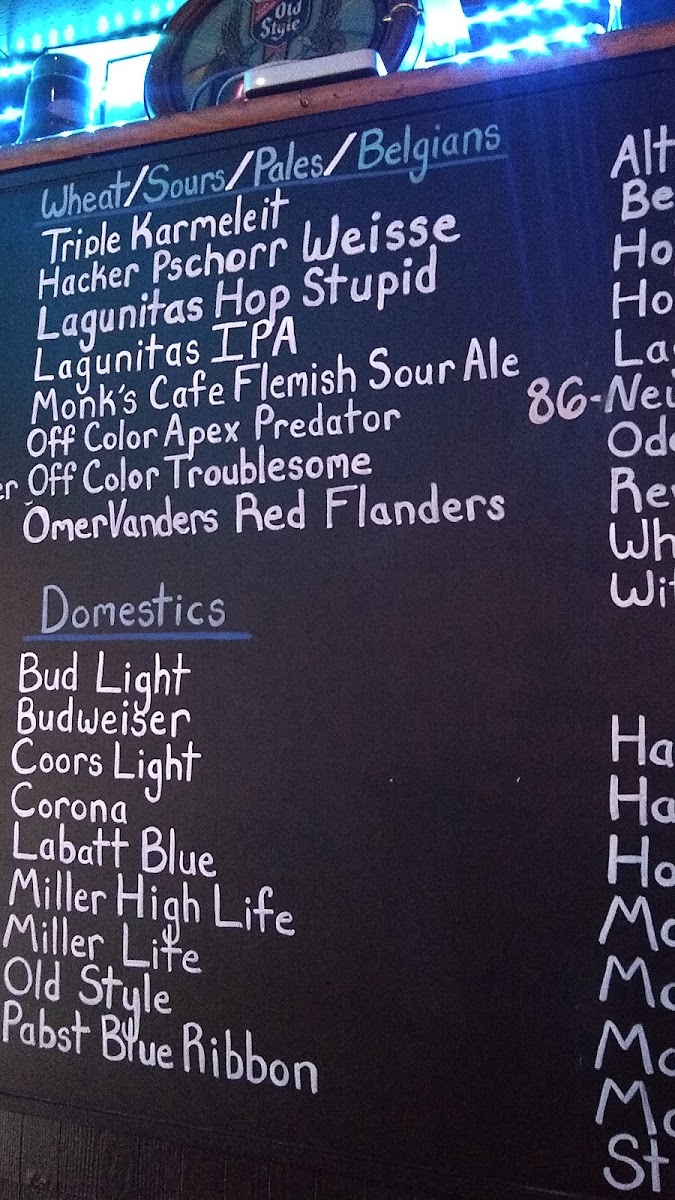 Old
Style
Wheat/Sours/Pales/Belgians
Triple Karmeleit
Hacker Pschorr Weisse
Lagunitas Hop Stupid
Lagunitas IPA
Monk's Cafe Flemish Sour Ale
Off Color Apex Predator
er Off Color Troublesome
OmerVanders Red Flanders
Domestics
Bud Light
Budweiser
Coors Light
Corona
Labatt Blue
Miller High Life
Miller Lite
Old Style
Pabst Blue Ribbon
Alt
Be
Ho
Ho
La
86-Nei
Od
Re
Wh
Wi
Ha
Ha
Ho
Mo
Mo
Mo
Mo
St